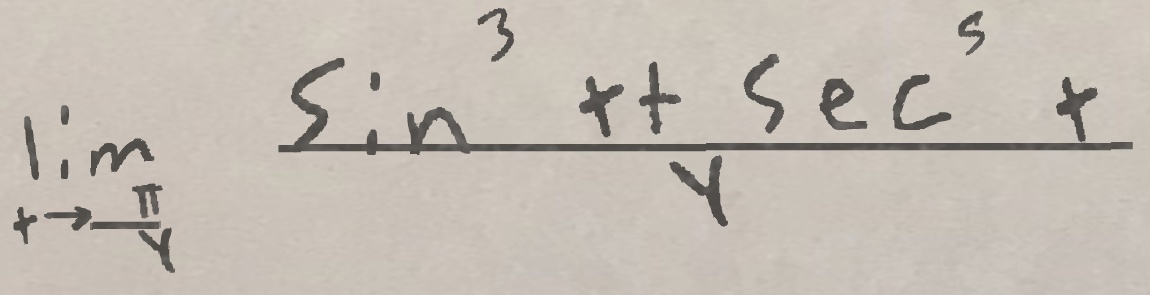 lim t→π/4 (sin³ t + sec⁵ t)/4